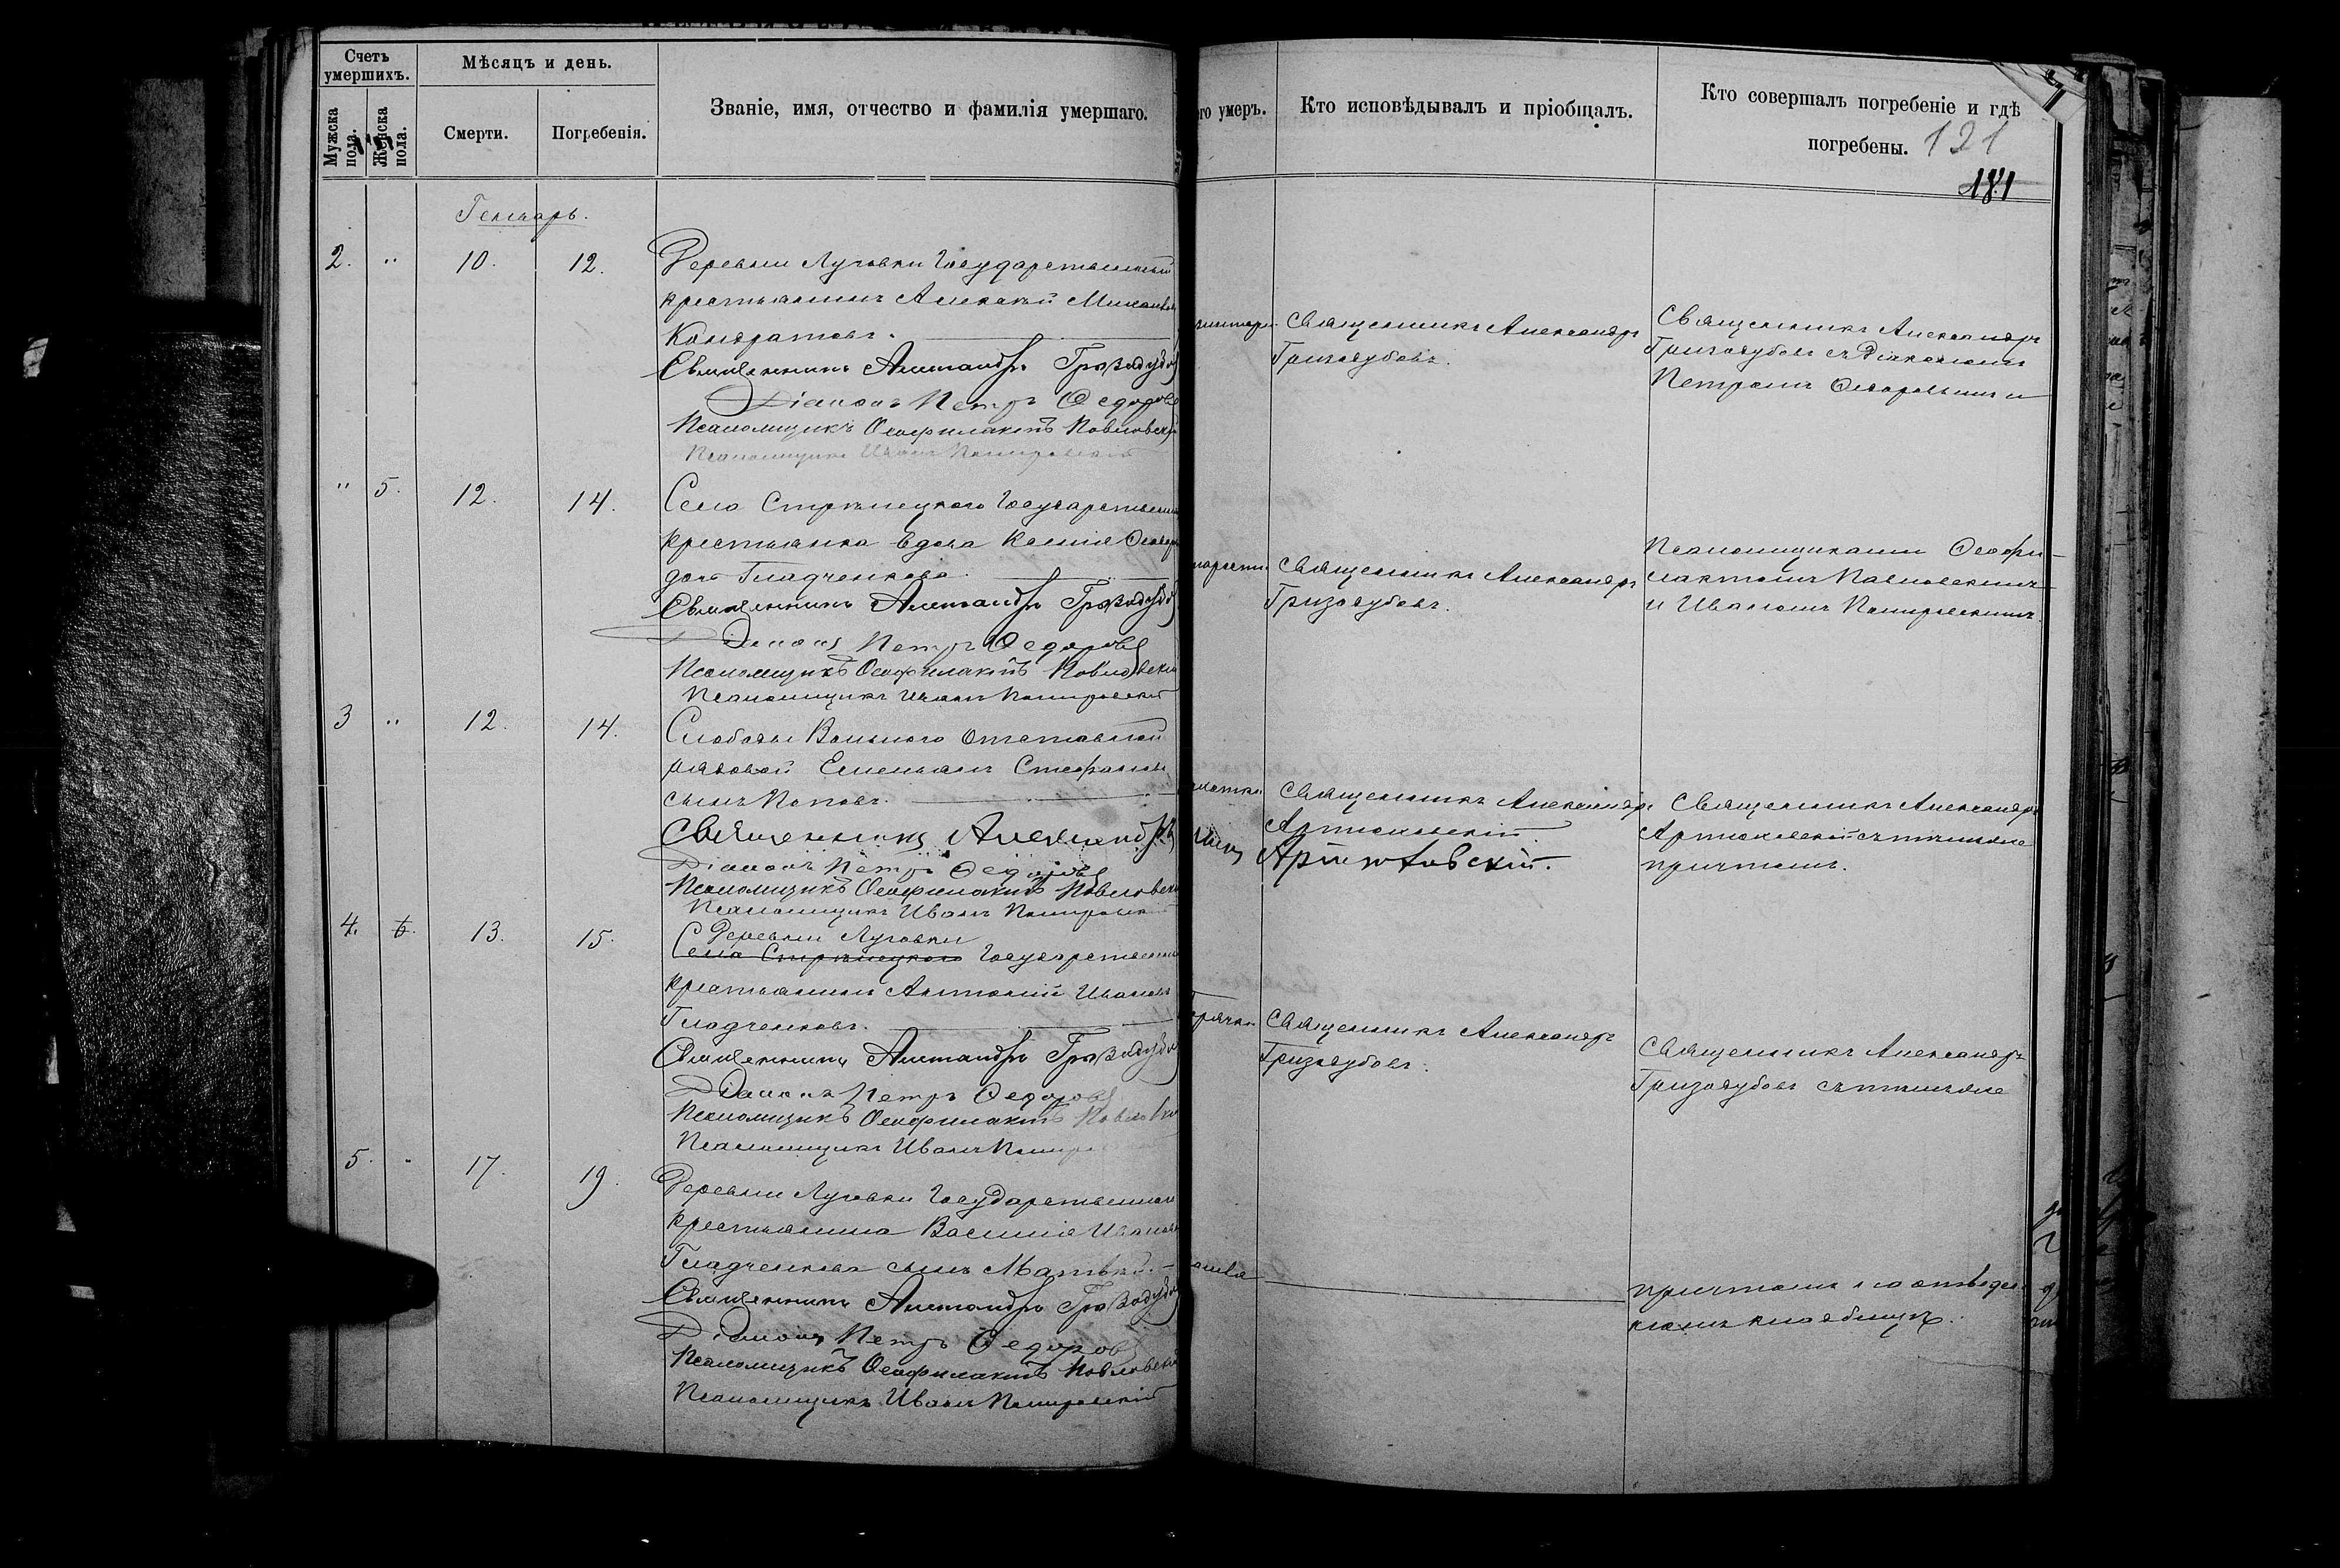 Счетъ умершихъ.
Мѣсяцъ и день.
Званіе, имя, отчество и фамилія умершаго.
Мужска пола.
Женска пола.
Смерти.
Погребенія.
го умеръ.
Кто исповѣдывалъ и пріобщалъ.
Кто совершалъ погребеніе и гдѣ
погребены.
121
181
Генварь.
2. " 10. 12.
Деревни Луговки Государственный
крестьянинъ Алексѣй Михаиловъ
Кондратовъ.
Священникъ Александръ Гризодубо
Діаконъ Петръ Ѳедоровъ
Псаломщикъ Ѳеофилактъ Павловскі
Псаломщикъ Иванъ Покировскій
Священникъ Александръ
Гризодубовъ.
Священникъ Александръ
Гризодубовъ съ Діакономъ
Петромъ Ѳедоровымъ и
" 5. 12. 14.
Села Стрѣлецкого Государственн
крестьянка вдова Ксенія Ѳеодо
дова Гладченкова
Священникъ Александръ Гризодубо
Діаконъ Петръ Ѳедоровъ
Псаломщикъ Ѳеофилактъ Павловскі
Псаломщикъ Иванъ Покировскій
старости
Священникъ Александръ
Гризодубовъ.
Псаломщиками Ѳеофи-
лактомъ Павловскимъ
и Иваномъ Покировскимъ.
3 " 12. 14.
Слободы Вольного отставной
рядовой Емельянъ Стефановъ
сынъ Поповъ.
Священникъ Александръ
Діаконъ Петръ Ѳедоровъ
Псаломщикъ Ѳеофилактъ Павловскі
Псаломщикъ Иванъ Покировскій
Священникъ Александръ
Артюховскій
Артюховскій.
Священникъ Александръ
Артюховскій съ тѣмъ же
причтомъ.
4. 6. 13. 15.
Деревни Луговки
Села Стрѣлецкого Государственны
крестьянинъ Антоній Ивановъ
Гладченковъ.
Священникъ Александръ Гризодубо
Діаконъ Петръ Ѳедоровъ
Псаломщикъ Ѳеофилактъ Павловс
Псаломщикъ Иванъ Покиро
горячки
Священникъ Александръ
Гризодубовъ.
Священникъ Александръ
Гризодубовъ съ тѣмъ же
5. " 17. 19.
Деревни Луговки Государственнаго
крестьянина Василія Иванова
Гладченкова сынъ Матвѣй.
Священникъ Александръ Гризодубо
Діаконъ Петръ Ѳедоровъ
Псаломщикъ Ѳеофилактъ Павловскі
Псаломщикъ Иванъ Покировскій
кашля
причтомъ на отведен
номъ кладбищѣ.